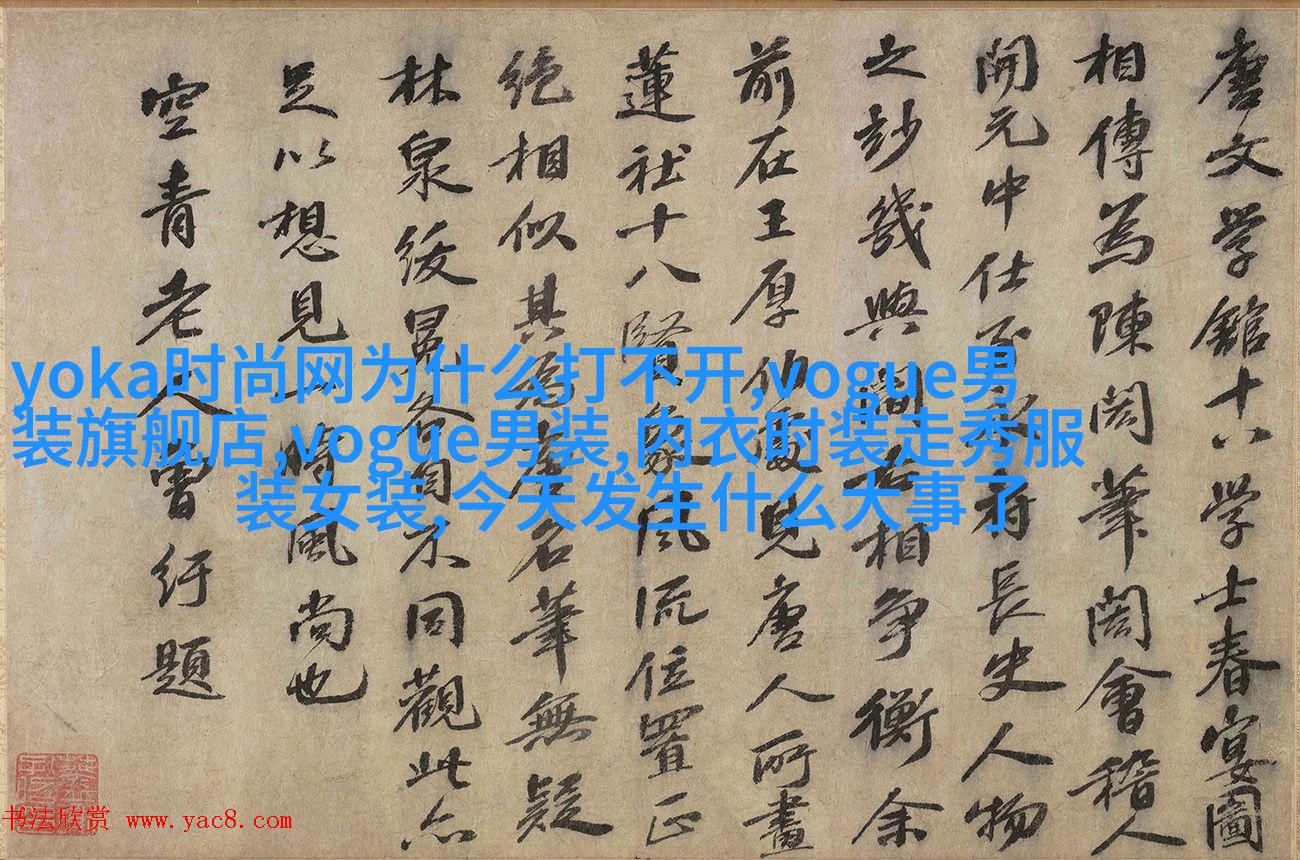 唐文学館十八学士春宴圖
相傳為陳閎筆閎會稽人
開元中仕至永府長史人物
之玅幾與閻相争衡余
前在王厚伯處見唐人所畫
蓮社十八賢象風流位置正
绝相似其為唐名筆無疑
林泉綬冕各自不同觀此亦
足以想見一時風尚也
空青老人曾紆題
yoka时尚网为什么打不开,vogue男
装旗舰店,vogue男装,内衣时装走秀服
装女装,今天发生什么大事了
书法欣赏 www.yac8.com